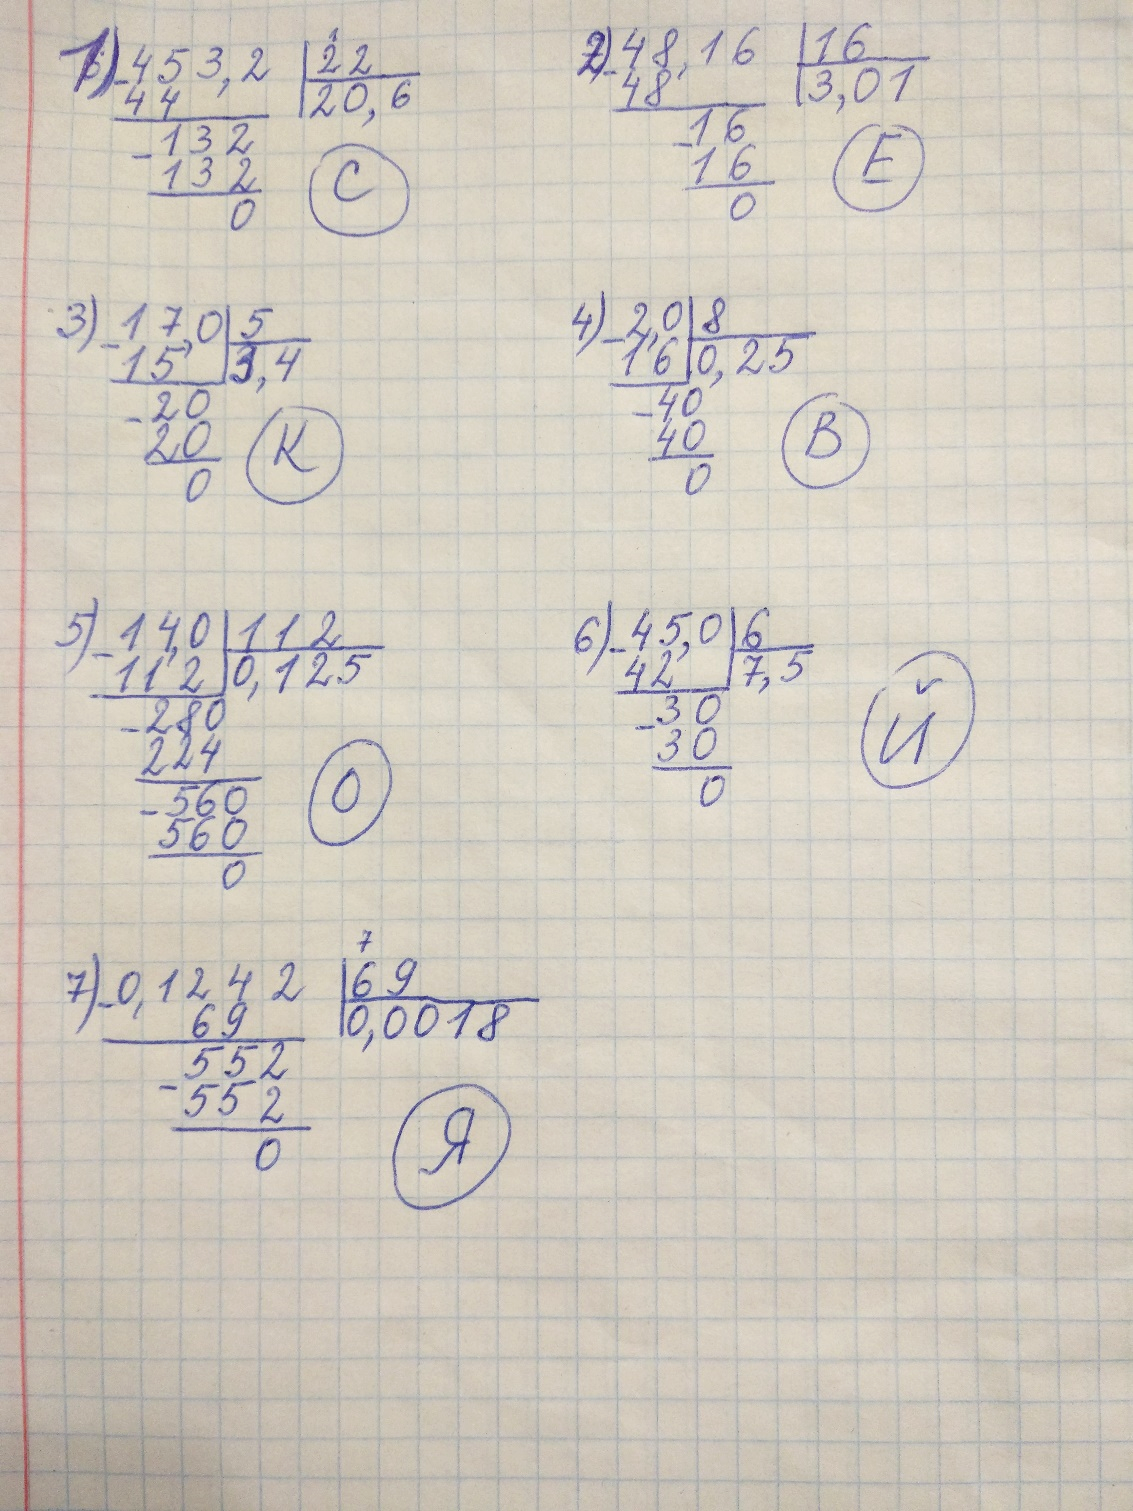 1) -453,2 | 22
44 | 20,6
-132
132
0
С
2) -48,16 | 16
48 | 3,01
-16
16
0
Е
3) -17,0 | 5
15 | 3,4
-20
20
0
К
4) -2,0 | 8
16 | 0,25
-40
40
0
В
5) -14,0 | 112
112 | 0,125
-280
224
-560
560
0
О
6) -45,0 | 6
42 | 7,5
-30
30
0
Й
7
7) -0,1242 | 69
69 | 0,0018
-552
552
0
Я